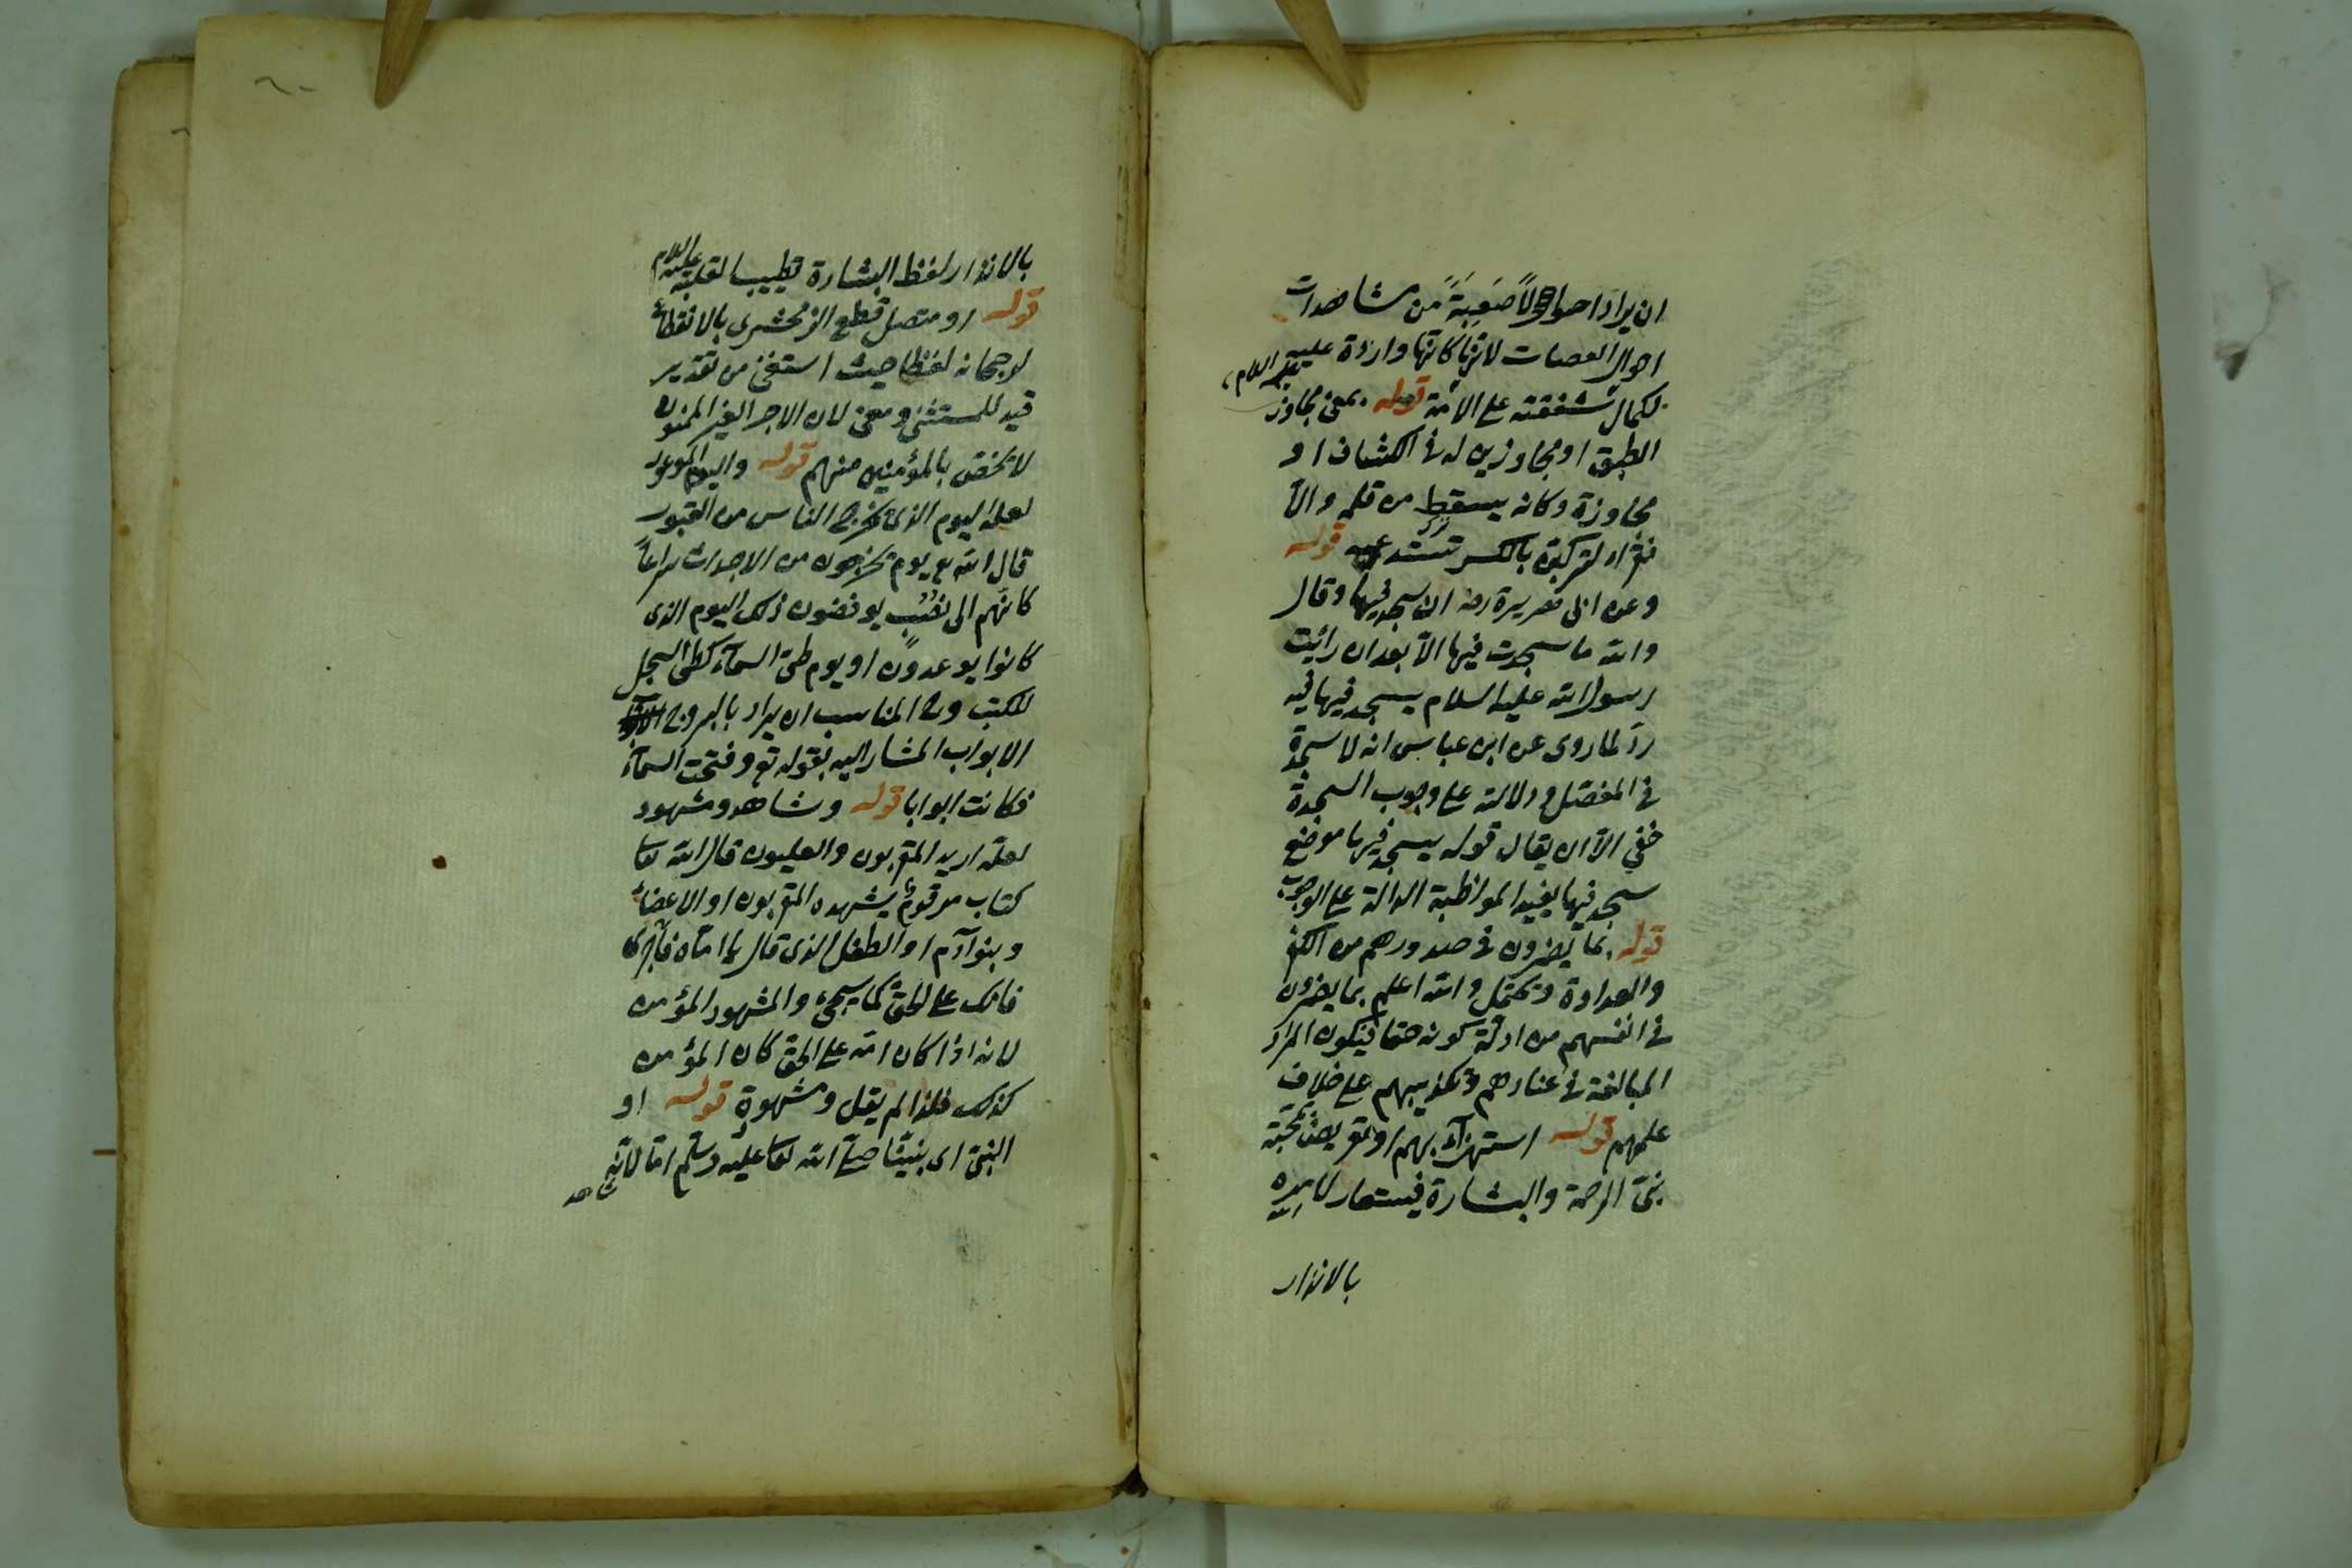 ان يراد احوالاً صَعِبَةً من مشاهدات
احوال العصات لانها كانها واردة عليه عليه السلام
لكمال شفقته على الامة قوله بمعنى مجاوز
الطبق او مجاوزين له في الكشاف او
مجاوزة وكانه يسقط من قلمه والا
بالكسر تستدعيه قوله
وعن ابي هريرة رضه انه سجد فيها وقال
والله ما سجدت فيها الا بعد ان رأيت
رسول الله عليه السلام يسجد فيها فيه
ردّ لما روى عن ابن عباس انه لا سجدة
في المفصّل ودلالته على وجوب السجدة
خفي الا ان يقال قوله يسجد فيها موضع
سجد فيها يفيد المواظبة الدالة على الوجوب
قوله بما يضمرون في صدورهم من الكفر
والعداوة ويحتمل والله اعلم بما يضمرون
في انفسهم من ادلّة كونه حقا فيكون المراد
المبالغة في عنادهم وتكذيبهم على خلاف
علمهم قوله استهزآء بهم او تعريض بمحبّة
نبيّ الرحمة والبشارة فيستعار لامره
بالانذار
بالانذار لفظ البشارة تطييبا لقلبه عليه السلام
قوله او متصل قطع الزمخشرى بالانقطاع
لرجحانه لفظا حيث استغنى من تقدير
قيد للمستثنى ومعنى لان الاجر الغير الممنون
لا يخص بالمؤمنين منهم قوله واليوم الموعود
لعله اليوم الذى يخرج الناس من القبور
قال الله تع يوم يخرجون من الاجداث سراعاً
كانهم الى نصُب يوفضون ذلك اليوم الذى
كانوا يوعدون او يوم طىّ السمآء كطىّ السجل
للكتب وح المناسب ان يراد بالبروج
الابواب المشار اليه بقوله تع وفتحت السمآء
فكانت ابوابا قوله وشاهد ومشهود
لعله اريد المقربون والعليون قال الله تعا
كتاب مرقوم يشهده المقربون او الاعضاء
وبنو آدم او الطفل الذى قال يا امّاه
فانك على الحق كما سيجئ والمشهود المؤمن
لانه اذا كان امّه على الحق كان المؤمن
كذلك فلذا لم يقل ومشهودة قوله او
النبىّ اى نبيّنا صلّى الله تعا عليه وسلم امّا لانّه